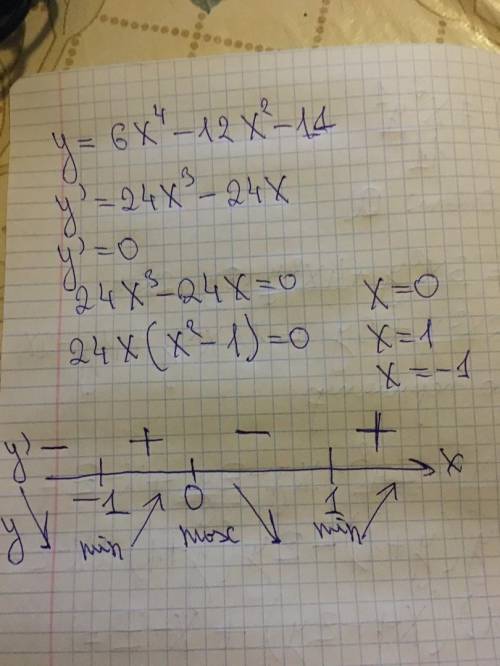 y = 6x⁴ - 12x² - 11
y' = 24x³ - 24x
y' = 0
24x³ - 24x = 0
24x(x² - 1) = 0
x = 0
x = 1
x = -1
y' - + - +
-1 0 1 x
y min max min